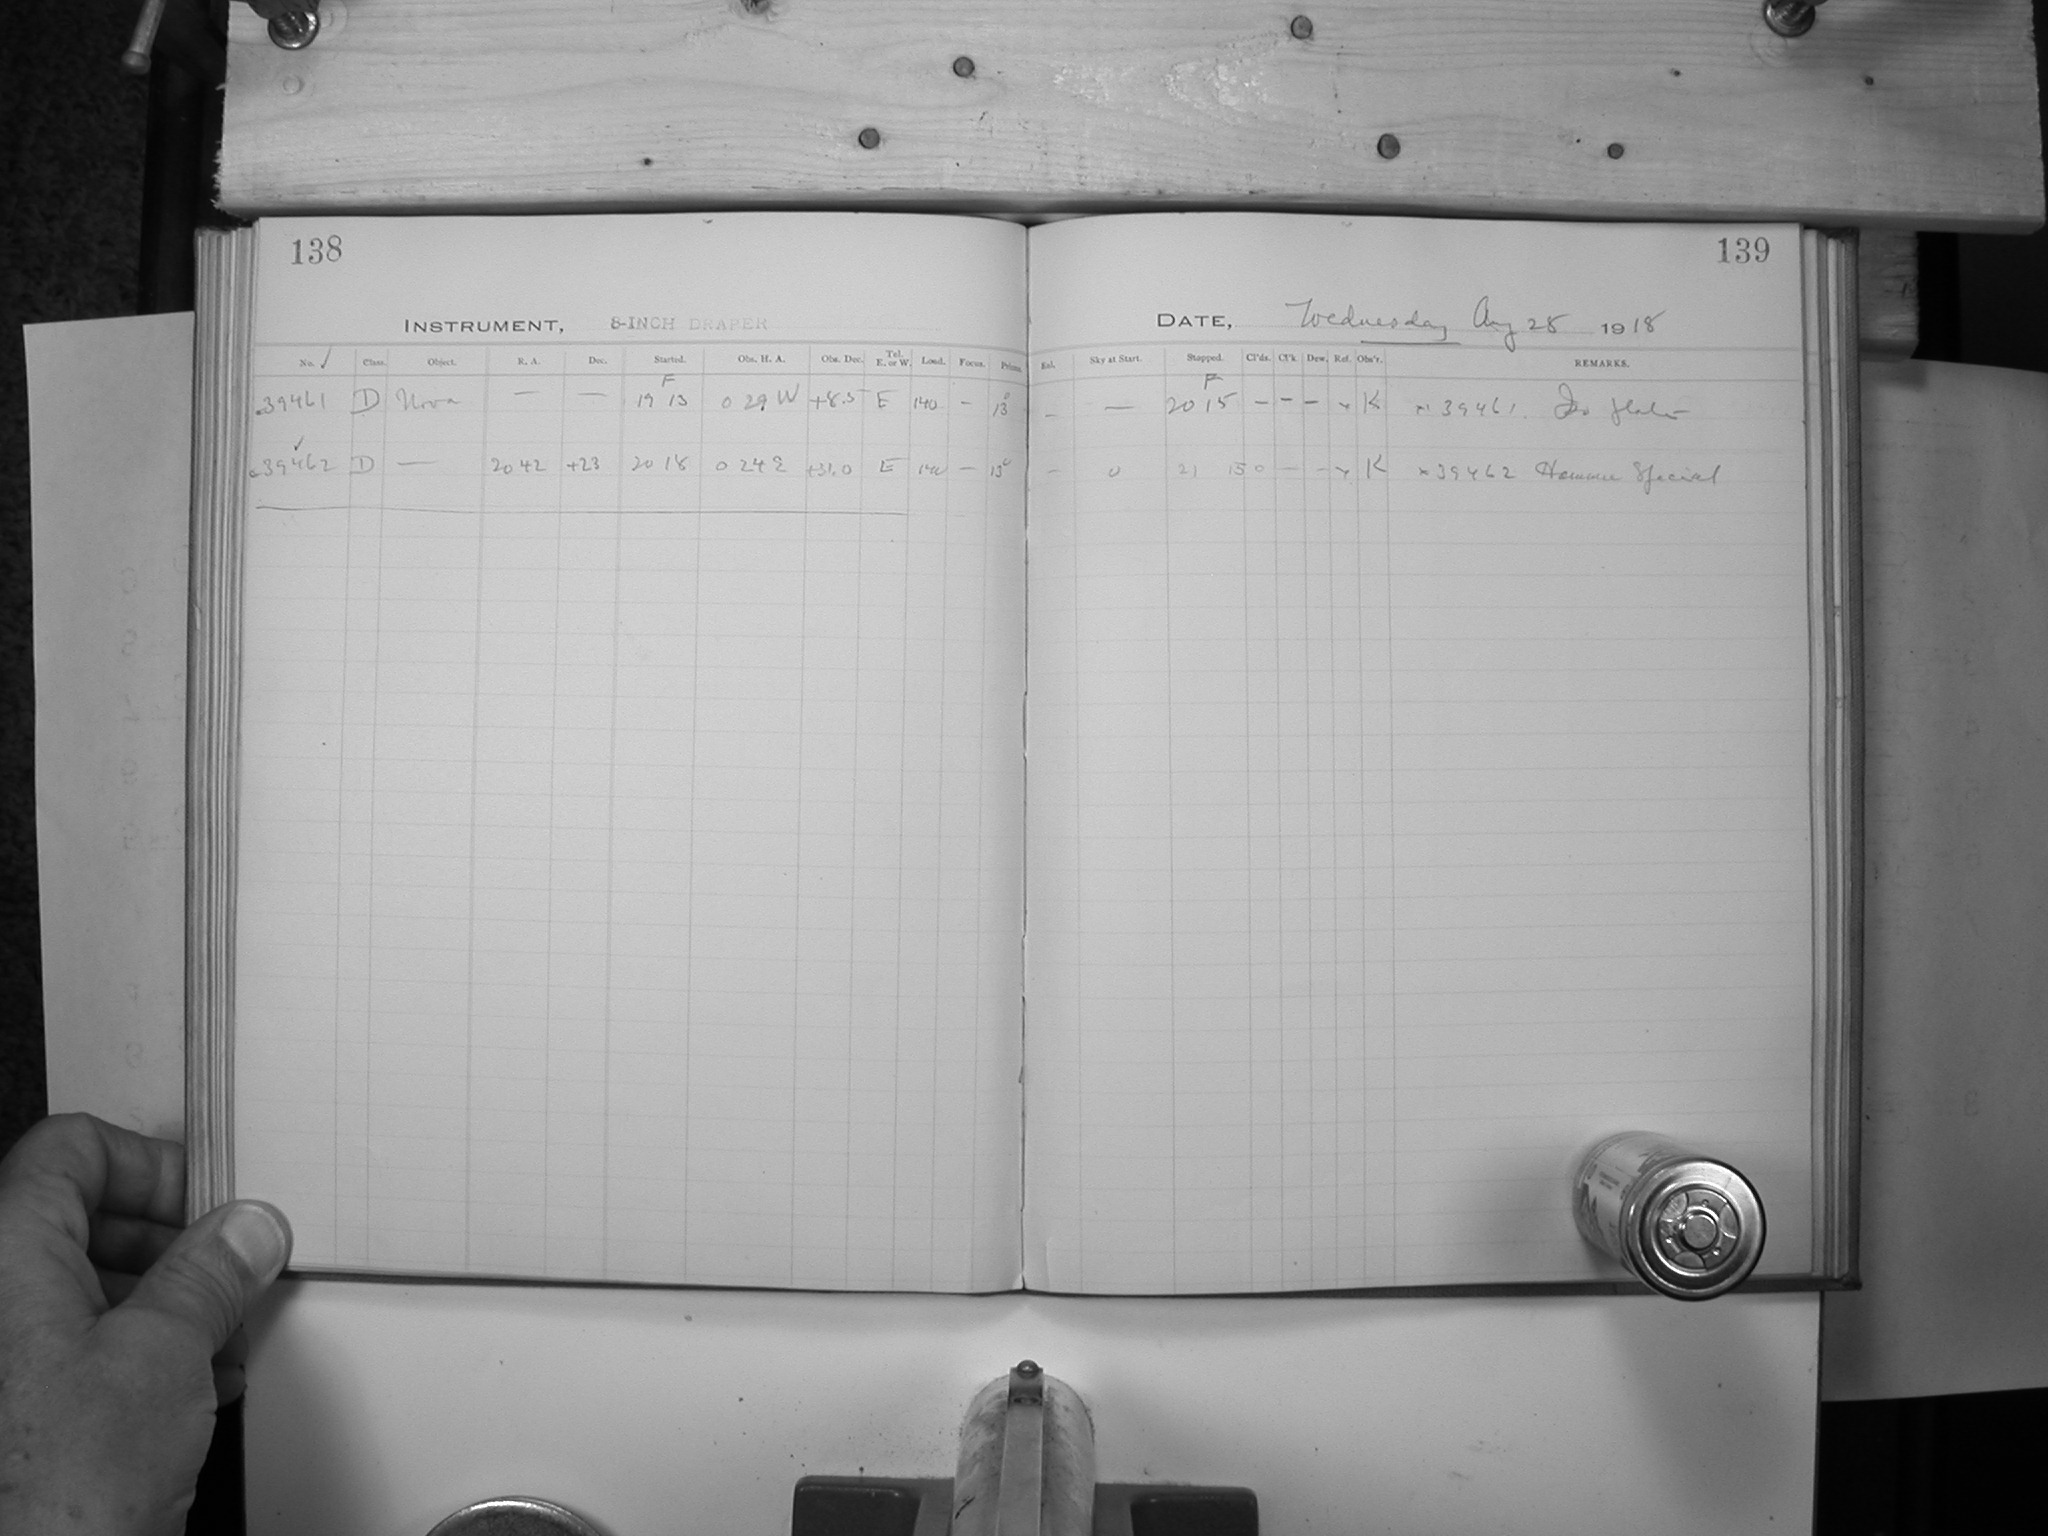 138
INSTRUMENT, 8-INCH DRAPER
No. ✓ Class. Object. R. A. Dec. Started. Obs. H. A. Obs. Dec. Tel. E. or W. Load. Focus. Prisms.
39461 D Nova — — F 19 13 0 29 W +8.5 E 140 — 13°
39462 D — 20 42 +23 20 18 0 24 E +31.0 E 140 — 13°
139
DATE, Wednesday Aug 28 1918
Exl. Sky at Start. Stopped. Cl'ds. Cl'k. Dew. Ref. Obs'r. REMARKS.
— — F 20 15 — — — K 39461.
— 0 21 15 0 — — K × 39462 Special